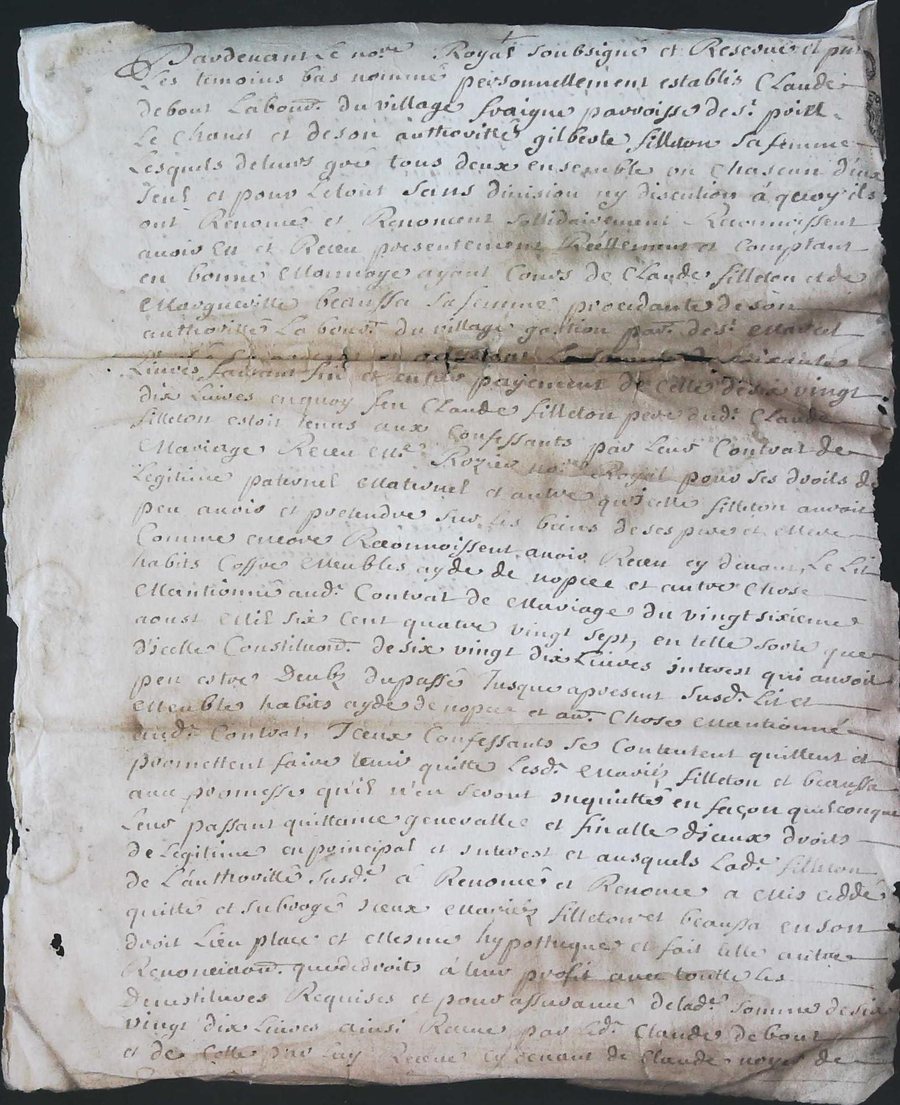 Pardevant Le no.re Royal soubsigné et Reservé et pnt
Les temoins bas nommé personnellement establis Claude
debout Labour. du village fraigne parroisse de s.t
Le Chanet et de son authoritte gilberte filleton sa femme
Lesquels de leurs gré tous deux ensemble un Chascun d'eux
seul et pour Le tout sans division ny discution á quoy ils
ont Renoncé et Renoncent sollidairement Recconnoissent
avoir Eu et Receu presentement Réellement et Comptant
en bonne Monnoye ayant Cours de Claude filleton et de
Margueritte beaussa sa femme procedante de son
authoritté Labour. du village par. de s.t
et
Livres faisant fin et entier payement de celle de six vingt
dix Livres en quoy feu Claude filleton pere dud. Claude
filleton estoit tenus aux Confessants par Leur Contrat de
Mariage Receu M.e Rozier no.re Royal pour ses droits de
Legitime paternel Maternel et autre qu'icelle filleton auroit
peu avoir et pretendre sur les biens de ses pere et Mere
Comme encore Reconnoissent avoir Receu cy devant Le Lit
habits Coffre Meubles ayde de nopce et autre Chose
Mantionné aud. Contrat de Mariage du vingt sixieme
aoust Mil six Cent quatre vingt sept, en telle sorte que
d'icelle Constituon. de six vingt dix Livres interest qui auroit
peu estre Deubz du passé Jusque apresent susd. Lit et
Meuble habits ayde de nopce et au. Chose Mantionné
aud. Contrat, Iceux Confessants se Contentent quittent et
promettent faire tenir quitte Lesd. Mariés filleton et beaussa
avec promesse qu'il n'en seront inquietté en façon quelconque
Leur passant quittance generalle et finalle d'iceux droits
de Legitime en principal et interest et ausquels Lad. filleton
de L'authoritté susd. á Renoncé et Renonce a Mis ceddé
quitté et subrogé iceux Mariés filleton et beaussa en son
droit Lieu place et Mesme hypotheque et fait telle autre
Renonciaon. que de droits á leur profit avec touttes les
Demistures Requises et pour assurance de lad. somme de six
vingt dix Livres ainsi Receue par led. Claude debout
et de Celle par Luy Receue cy devant de Claude noyer de